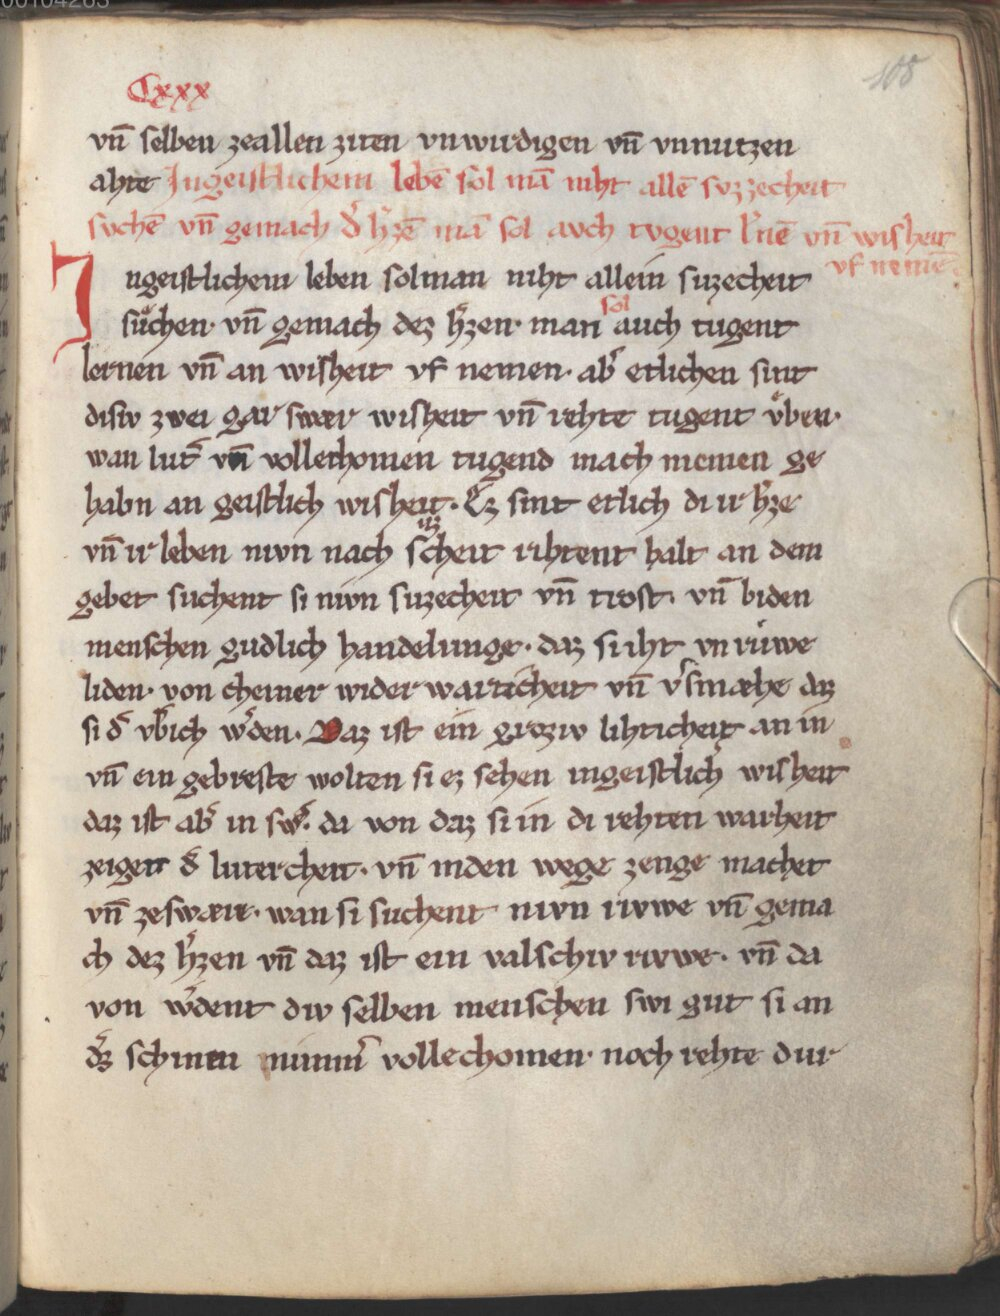 00104285
108
Cxxx
vn̄ selben zeallen ziten vnwirdigen vn̄ vnnutzen
ahte Jngeistlichem lebē sol mā niht allē svzzecheit
svchē vn̄ gemach d̉ h̉zē mā sol avch tvgent l̉nē vn̄ wisheit
vf nemē.
Jngeistlichem leben solman niht allein suzecheit
sůchen· vn̄ gemach dez h̉zen· man sol auch tugent
lernen vn̄ an wisheit vf nemen· ab̉ etlichen sint
disiv zwei gar swær wisheit vn̄ rehte tugent v̊ben·
wan lut̉ vn̄ vollechomen tugend mach niemen ge
habn an geistlich wisheit· Ez sint etlich di ir h̉ze
vn̄ ir leben nivn nach suzcheit rihtent halt an dem
gebet suchent si nivn suzecheit vn̄ trost· vn̄ biden
menschen gudlich handelunge· daz si iht vn růwe
liden· von cheiner wider wærticheit vn̄ v̉smæhe daz
si d̉ vb̉ich w̉den· Daz ist ein groziv lihticheit an in
vn̄ ein gebreste wolten si ez sehen ingeistlich̉ wisheit
daz ist ab̉ in sw̉· da von daz si in di rehten warheit
zeigett d̉ lutercheit· vn̄ inden wege zenge machet
vn̄ zeswære· wan si suchent nivn rivwe vn̄ gema
ch dez h̉zen vn̄ daz ist ein valschiv rivwe· vn̄ da
von w̉dent div selben menschen swi gut si an
d̉z schinen nimm̉ vollechomen· noch rehte dur